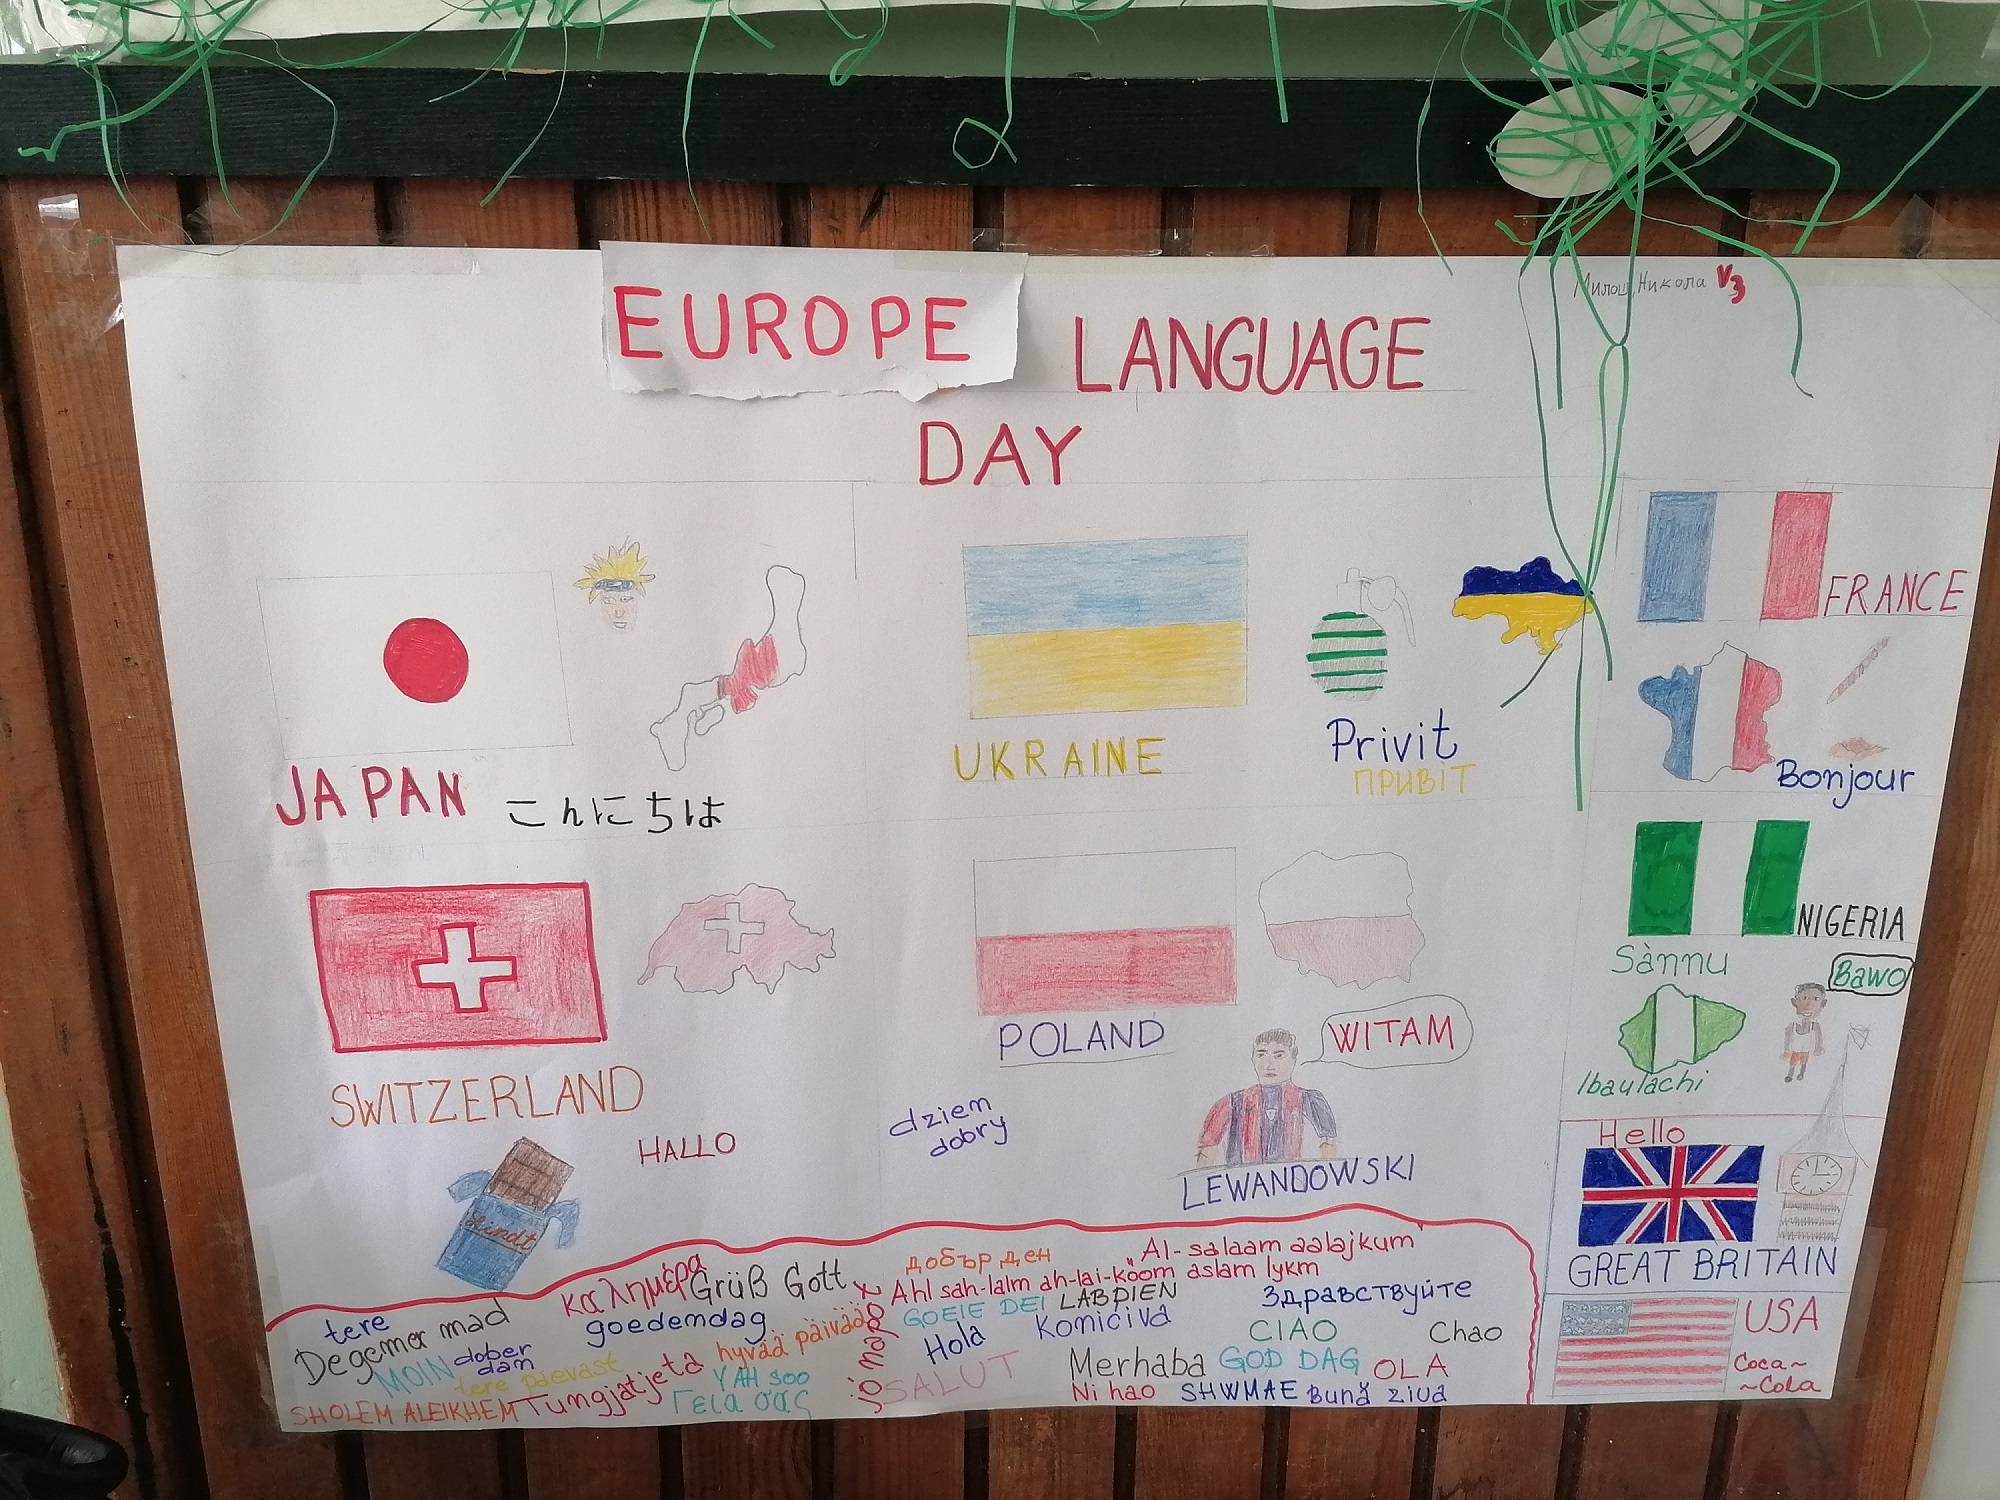 EUROPE LANGUAGE
DAY
Милош, Никола V3
JAPAN
こんにちは
UKRAINE
Privit
ПРИВІТ
FRANCE
Bonjour
SWITZERLAND
HALLO
Lindt
POLAND
WITAM
dziem
dobry
LEWANDOWSKI
NIGERIA
Sànnu
Bawo
Ibaulachi
Hello
GREAT BRITAIN
USA
Coca~
~Cola
καλημέρα
Grüß Gott
добър ден
Al-salaam aalajkum
Ahl sah-lalm ah-lai-koom aslam lykm
tere
Degemer mad
goedemdag
GOEIE DEI
LABDIEN
Здравствуйте
MOIN
dober
dam
hyvää päivää
jó napot
Hola
Komiciva
CIAO
Chao
tere päevast
Tungjatjeta
YAH SOO
SALUT
Merhaba
GOD DAG
OLA
SHOLEM ALEIKHEM
Γεια σας
Ni hao
SHWMAE
Bună ziua